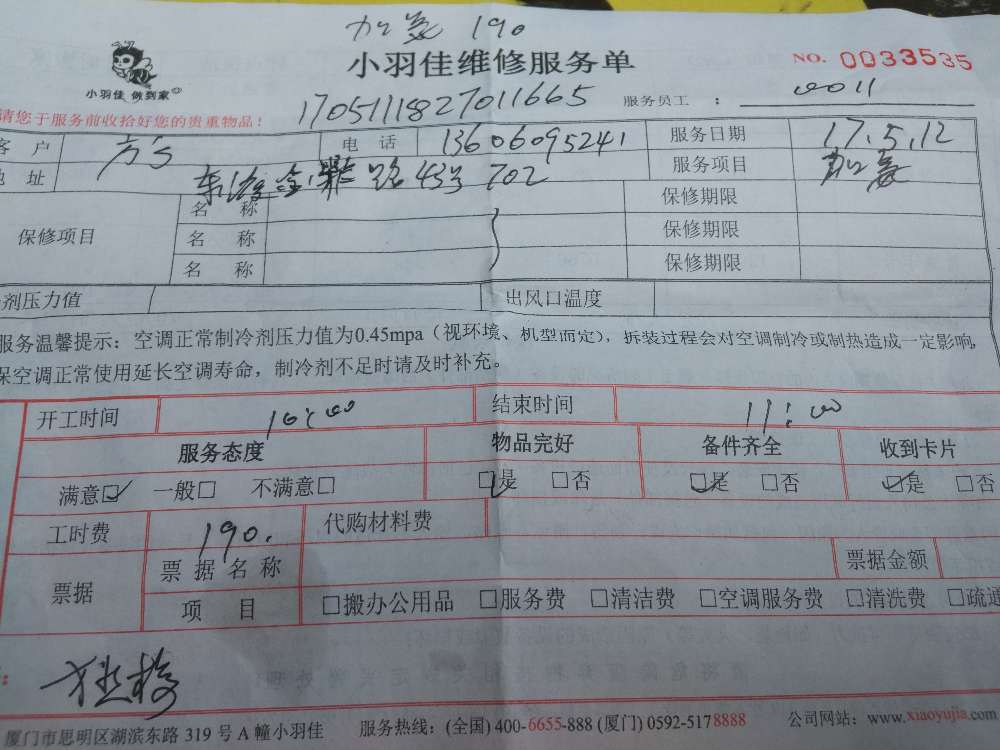 加氟 190
小羽佳维修服务单
NO. 0033535
小羽佳 做到家
170511182701 1665 服务员工 : 0011
请您于服务前收拾好您的贵重物品!
客 户 方 电 话 13606095241 服务日期 17.5.12
地 址 路43号702 服务项目 加氟
保修项目 名 称 保修期限
名 称 保修期限
名 称 保修期限
剂压力值 出风口温度
服务温馨提示:空调正常制冷剂压力值为0.45mpa(视环境、机型而定),拆装过程会对空调制冷或制热造成一定影响,
保空调正常使用延长空调寿命,制冷剂不足时请及时补充。
开工时间 10:00 结束时间 11:00
服务态度 物品完好 备件齐全 收到卡片
满意☑ 一般□ 不满意□ ☑是 □否 ☑是 □否 ☑是 □否
工时费 190. 代购材料费
票据 票据名称 票据金额
项 目 □搬办公用品 □服务费 □清洁费 □空调服务费 □清洗费 □疏通
厦门市思明区湖滨东路 319 号 A 幢小羽佳 服务热线:(全国) 400-6655-888 (厦门) 0592-5178888 公司网站:www.xiaoyujia.com